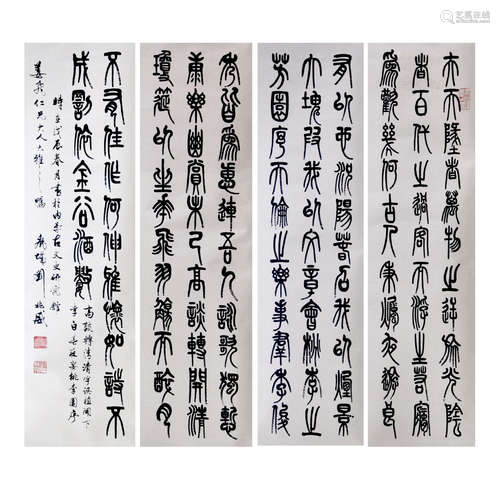 夫天墬者萬物之逆旅光陰
者百代之過客而浮生若夢
為歡幾何古人秉燭夜遊良
有以也況陽春召我以煙景
大塊假我以文章會桃李之
芳園序天倫之樂事群季俊
秀皆為惠連吾人詠歌獨慚
康樂幽賞未已高談轉開清
瓊筵以坐花飛羽觴而醉月
不有佳作何伸雅懷如詩不
成罰依金谷酒數
高談轉清清字誤植開下
李白春夜宴桃李園序
時在戊辰春月書於內蒙古文史研究館
仁兄大人大雅之嘱 劉